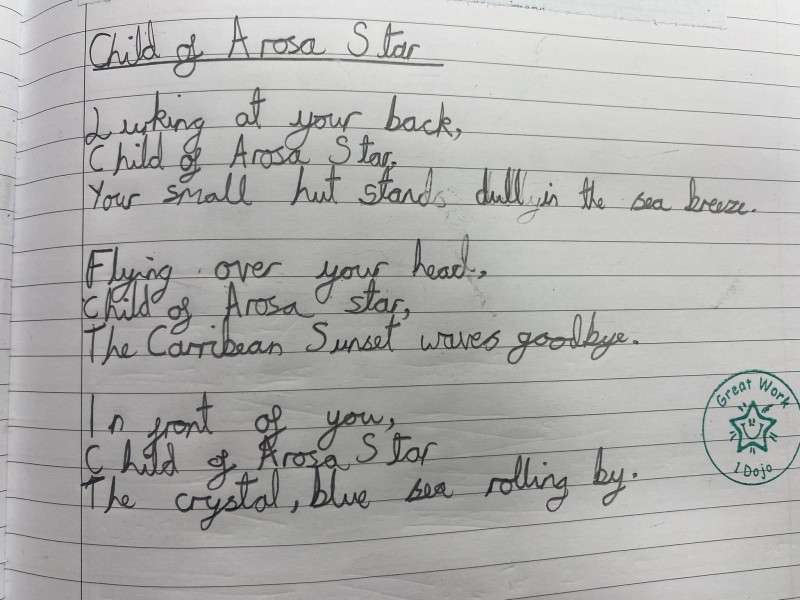 Child of Arosa Star
Lurking at your back,
Child of Arosa Star,
Your small hut stands dully in the sea breeze.
Flying over your head,
Child of Arosa star,
The Carribean Sunset waves goodbye.
In front of you,
Child of Arosa Star
The crystal, blue sea rolling by.
Great Work
1 Dojo